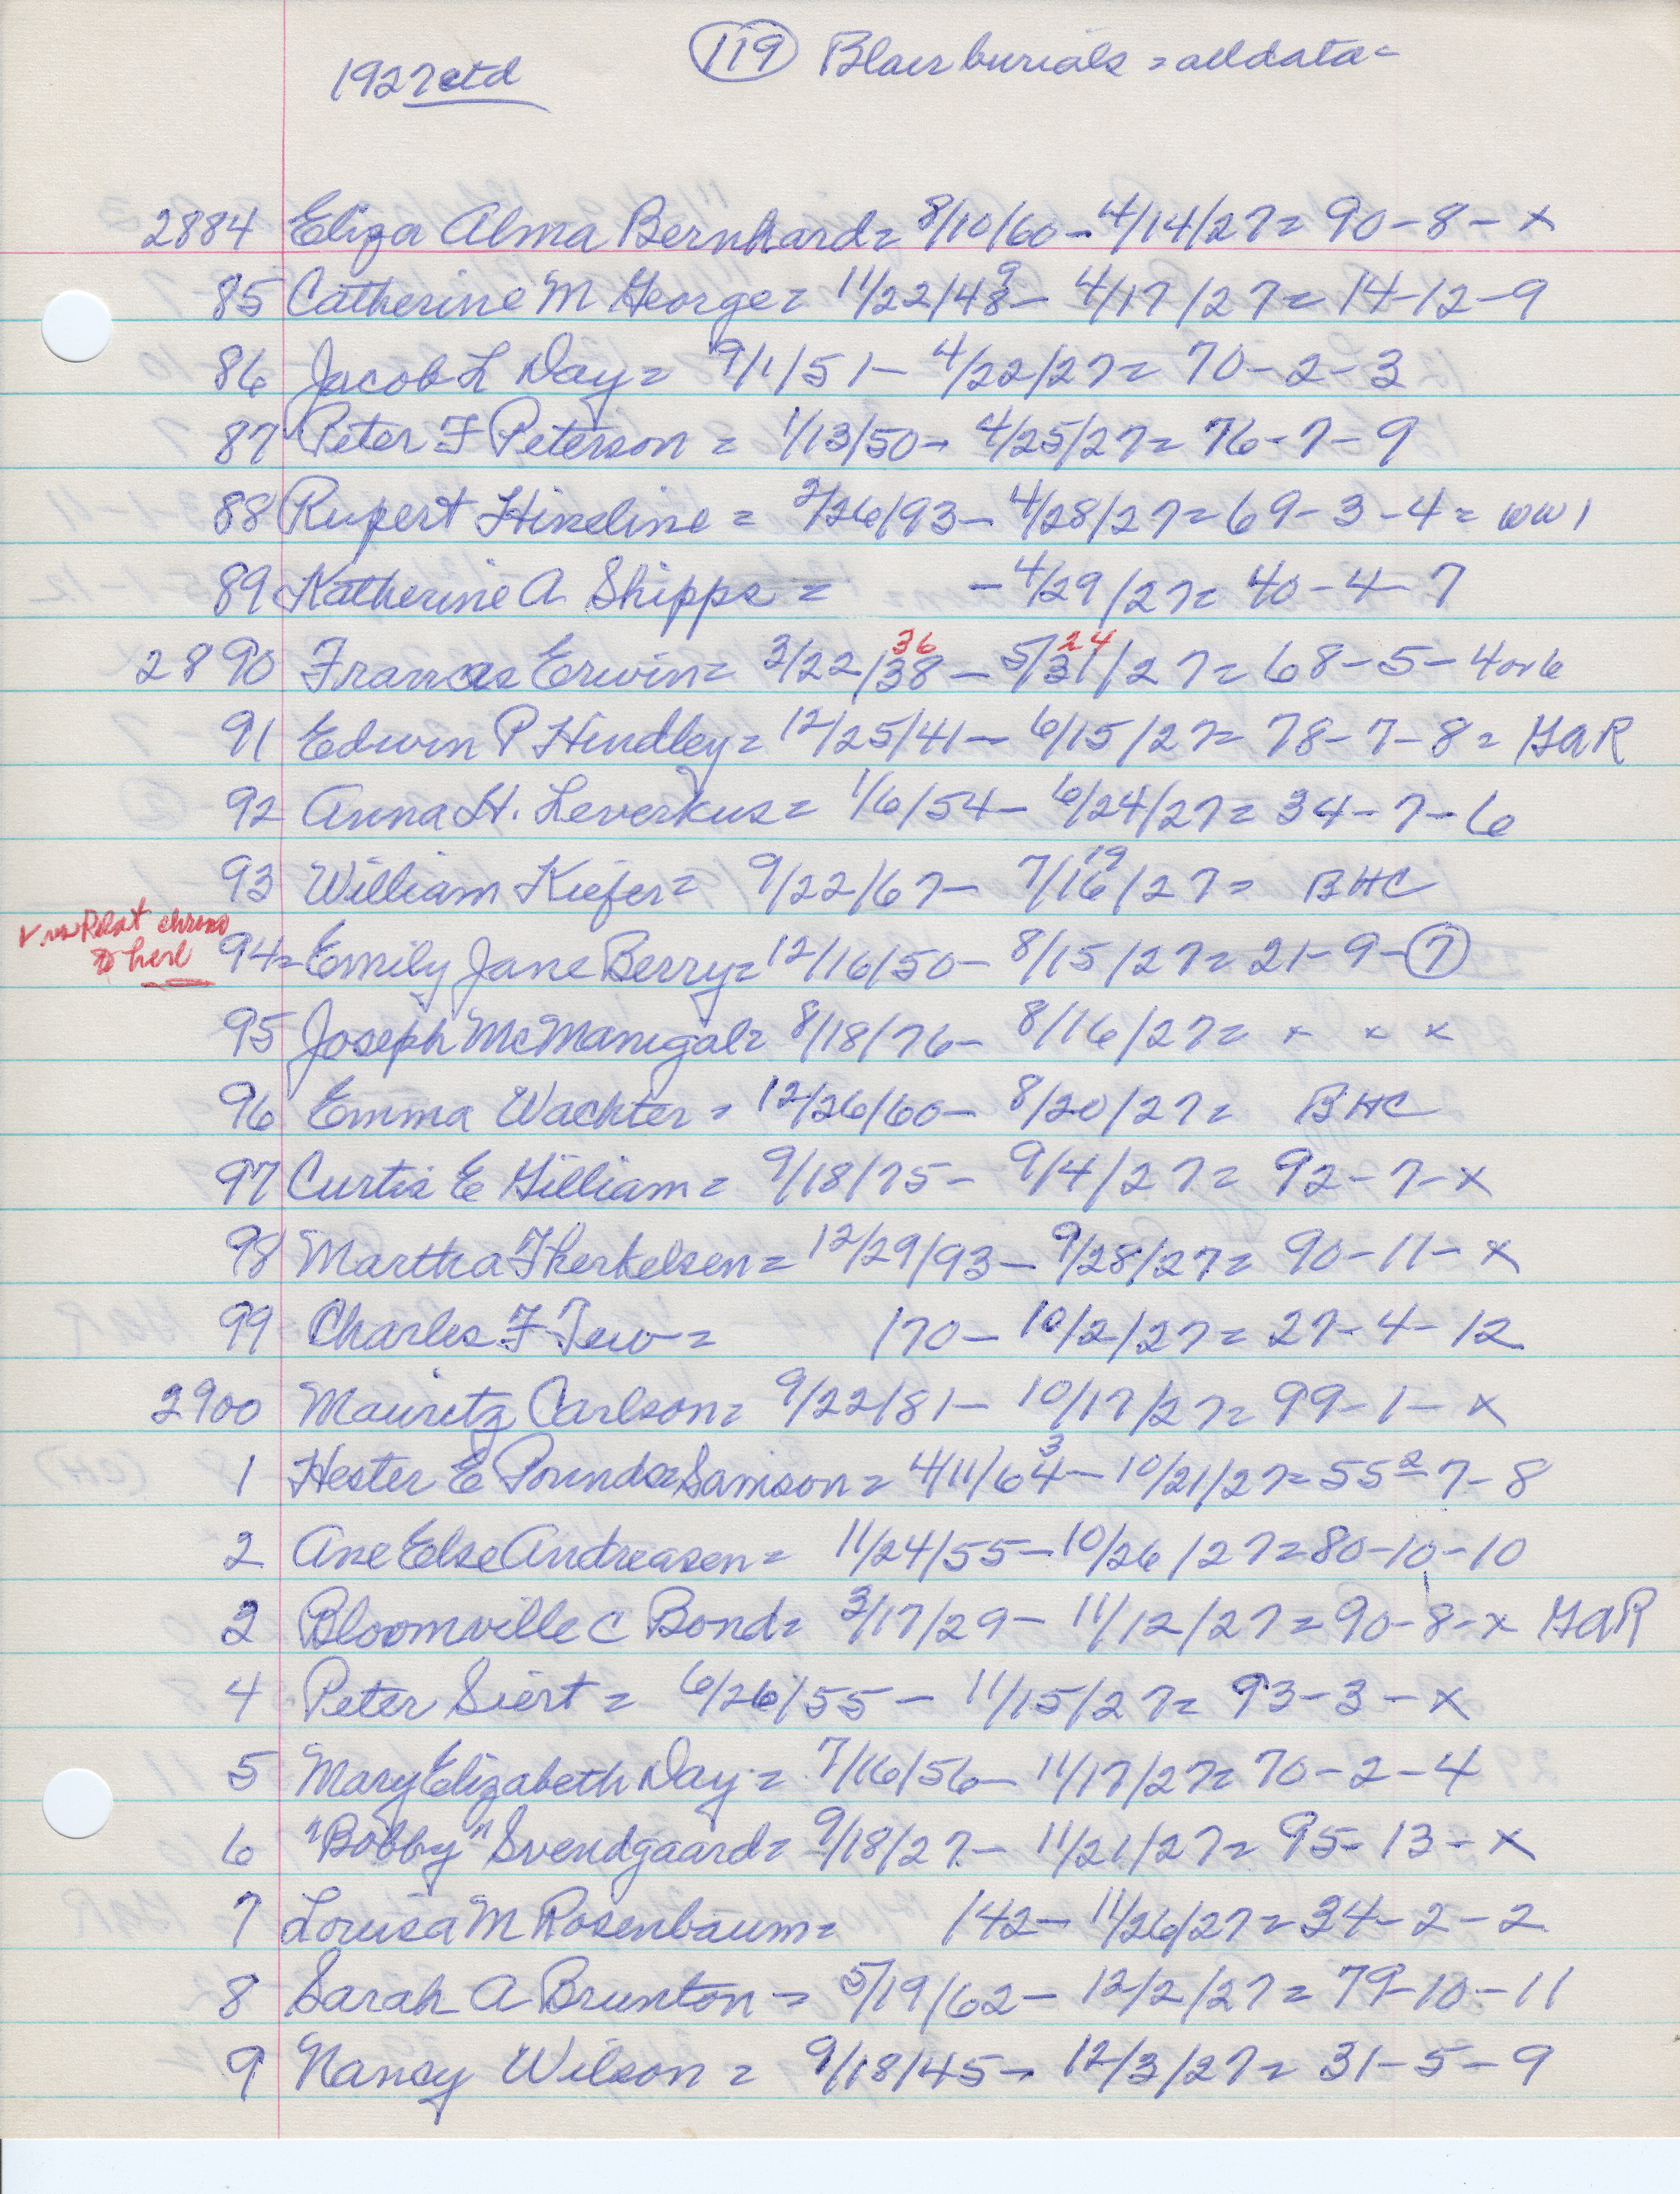 1927 ctd (119) Blair burials = all data =
2884 Eliza Alma Bernhard = 8/10/60 - 4/14/27 = 90-8-x
9
85 Catherine M George = 11/22/48 - 4/17/27 = 14-12-9
86 Jacob L Day = 9/1/51 - 4/22/27 = 70-2-3
87 Peter F Peterson = 1/13/50 - 4/25/27 = 76-7-9
88 Rupert Hineline = 2/26/93 - 4/28/27 = 69-3-4 = WW1
89 Katherine A Shipps = - 4/29/27 = 40-4-7
36 24
2890 Frances Erwin = 3/22/38 - 5/31/27 = 68-5-4 or 6
91 Edwin P Hindley = 12/25/41 - 6/15/27 = 78-7-8 = GAR
92 Anna H. Leverkus = 1/6/54 - 6/24/27 = 34-7-6
19
93 William Kiefer = 9/22/67 - 7/16/27 = BHC
✓ Plat chrono
to here
94 = Emily Jane Berry = 12/16/50 - 8/15/27 = 21-9-(7)
95 Joseph McManigal = 8/18/76 - 8/16/27 = x x x
96 Emma Wachter = 12/26/60 - 8/20/27 = BHC
97 Curtis E Gilliam = 9/18/75 - 9/4/27 = 92-7-x
98 Martha Therkelsen = 12/29/93 - 9/28/27 = 90-11-x
99 Charles F Tew = /70 - 10/2/27 = 27-4-12
2900 Mauritz Carlson = 9/22/81 - 10/17/27 = 99-1-x
3
1 Hester E Pounds Samson = 4/11/64 - 10/21/27 = 55a-7-8
2 Ane Else Andreasen = 11/24/55 - 10/26/27 = 80-10-10
3 Bloomville C Bond = 3/17/29 - 11/12/27 = 90-8-x GAR
4 Peter Siert = 6/26/55 - 11/15/27 = 93-3-x
5 Mary Elizabeth Day = 7/16/56 - 11/17/27 = 70-2-4
6 "Bobby" Svendgaard = 9/18/27 - 11/21/27 = 95-13-x
7 Louisa M Rosenbaum = /42 - 11/26/27 = 34-2-2
8 Sarah A Brunton = 5/19/62 - 12/2/27 = 79-10-11
9 Nancy Wilson = 9/18/45 - 12/3/27 = 31-5-9